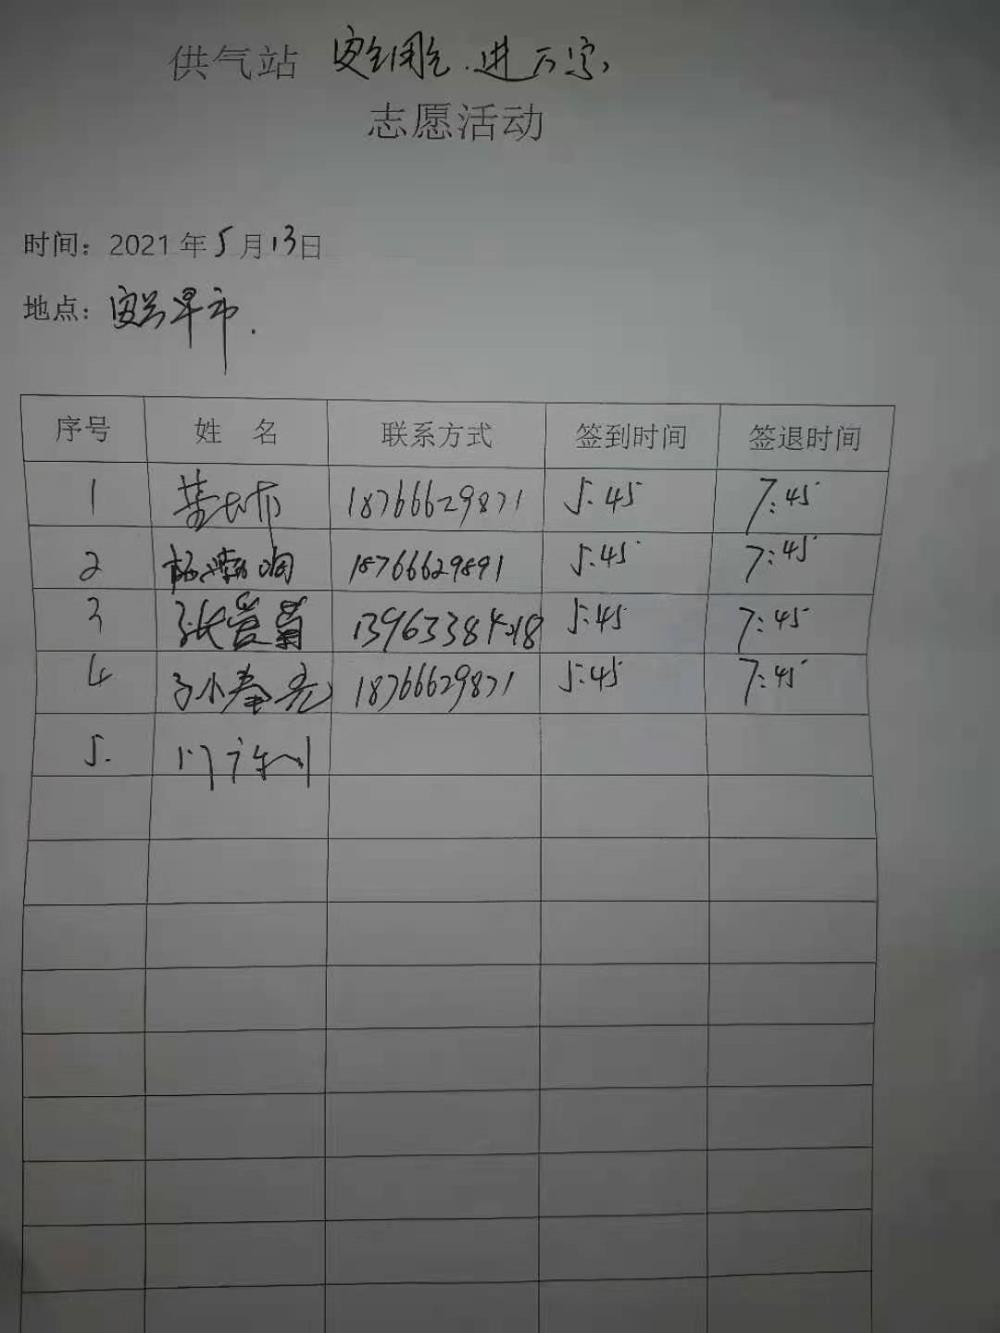 供气站 安全用气.进万家
志愿活动
时间：2021年5月13日
地点： 早市.
序号 姓 名 联系方式 签到时间 签退时间
1 18766629871 5:45 7:45
2 18766629891 5:45 7:45
3 张 5:45 7:45
4 孙春亮 18766629871 5:45 7:45
5. 门